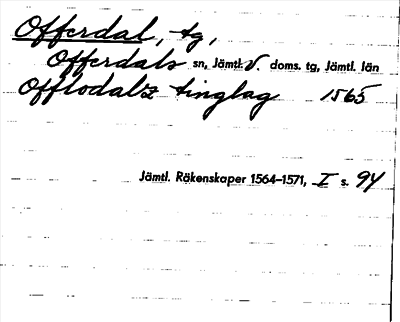 Offerdal, tg,
Offerdals sn, Jämtl. V. doms. tg, Jämtl. län
Offlodalz tinglag 1565
Jämtl. Räkenskaper 1564-1571, I s. 94